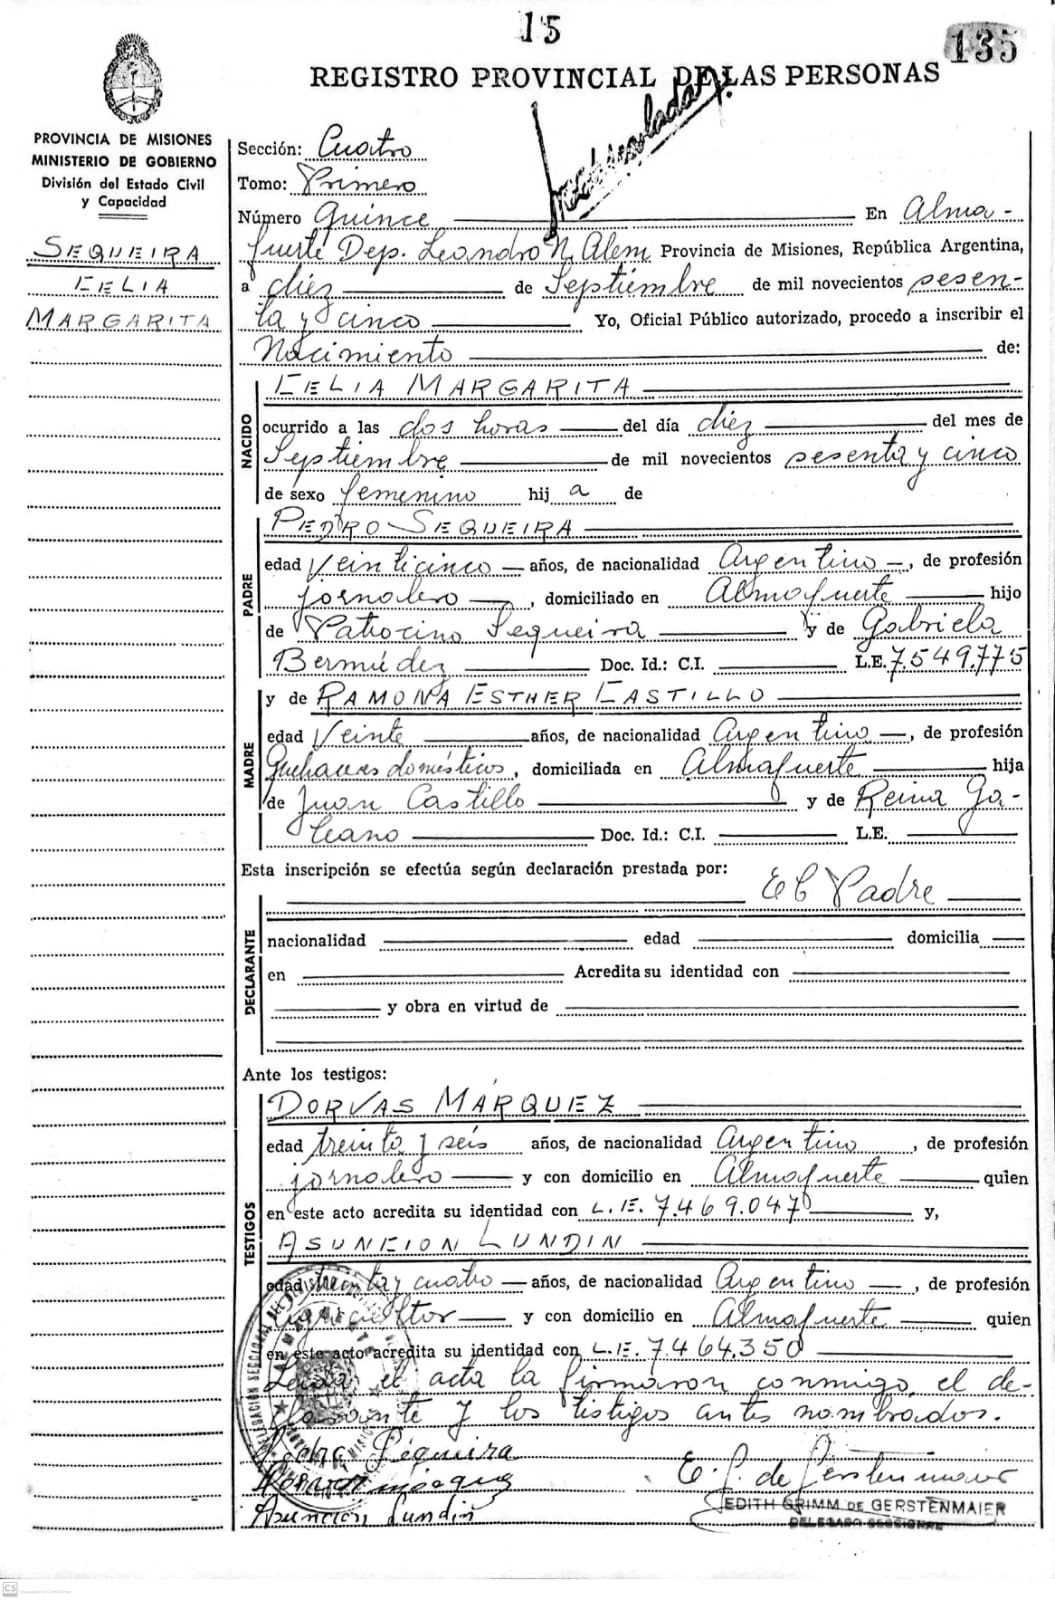 15
135
REGISTRO PROVINCIAL DE LAS PERSONAS
PROVINCIA DE MISIONES
MINISTERIO DE GOBIERNO
División del Estado Civil
y Capacidad
SEQUEIRA
CELIA
MARGARITA
Sección: Cuatro
Tomo: Primero
Número Quince En Alma-
fuerte Dep. Leandro N. Alem Provincia de Misiones, República Argentina,
a diez de Septiembre de mil novecientos sesen-
ta y cinco Yo, Oficial Público autorizado, procedo a inscribir el
Nacimiento de:
NACIDO
CELIA MARGARITA
ocurrido a las dos horas del día diez del mes de
Septiembre de mil novecientos sesenta y cinco
de sexo femenino hij a de
PADRE
PEDRO SEQUEIRA
edad Veinticinco años, de nacionalidad Argentino, de profesión
jornalero, domiciliado en Almafuerte hijo
de Patrocino Sequeira y de Gabriela
Bermúdez Doc. Id.: C.I. L.E. 7.549.775
MADRE
y de RAMONA ESTHER CASTILLO
edad Veinte años, de nacionalidad Argentino, de profesión
Quehaceres domésticos, domiciliada en Almafuerte hija
de Juan Castillo y de Reina Ga-
leano Doc. Id.: C.I. L.E.
Esta inscripción se efectúa según declaración prestada por: El Padre
DECLARANTE
nacionalidad edad domicilia
en Acredita su identidad con
y obra en virtud de
Ante los testigos:
TESTIGOS
DORVAS MÁRQUEZ
edad treinta y seis años, de nacionalidad Argentino, de profesión
jornalero y con domicilio en Almafuerte quien
en este acto acredita su identidad con L.E. 7.469.047 y,
ASUNCION LUNDIN
edad treinta y cuatro años, de nacionalidad Argentino, de profesión
Agricultor y con domicilio en Almafuerte quien
en este acto acredita su identidad con L.E. 7.464.350
Leída el acta la firmaron conmigo el de-
clarante y los testigos antes nombrados.
Pedro Sequeira
E. G. de Gerstenmaier
Asunción Lundin
EDITH GRIMM DE GERSTENMAIER
DELEGADO SECCIONAL
CS